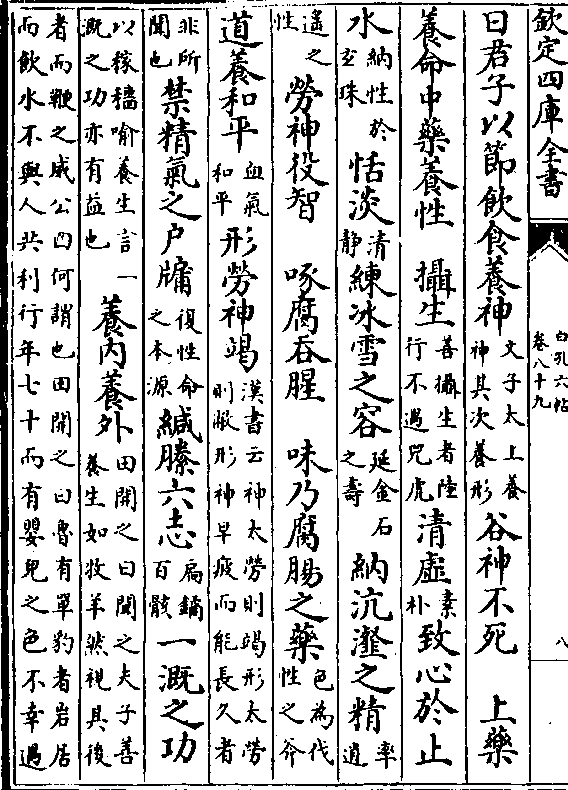 欽定四庫全書
白孔六帖
卷八十九
八
曰君子以節飲食養神
文子太上養
神其次養形
谷神不死　上藥
養命中藥養性　攝生
善攝生者陸
行不遇兕虎
清虛
素
朴
致心於止
水
納性於
玄珠
恬淡
清
靜
練冰雪之容
延金石
之壽
納沆瀣之精
率
遒
遙之
性
勞神役智　啄腐吞腥　味乃腐腸之藥
色為伐
性之斧
道養和平
血氣
和平
形勞神竭
漢書云神太勞則竭形太勞
則敝形神早疲而能長久者
非所
聞也
禁精氣之户牖
復性命
之本源
緘縢六志
扃鐍
百骸
一溉之功
以稼穡喻養生言一
溉之功亦有益也
養内養外
田開之曰聞之夫子善
養生如牧羊然視其後
者而鞭之威公曰何謂也田開之曰魯有單豹者岩居
而飲水不與人共利行年七十而有嬰兒之色不幸遇